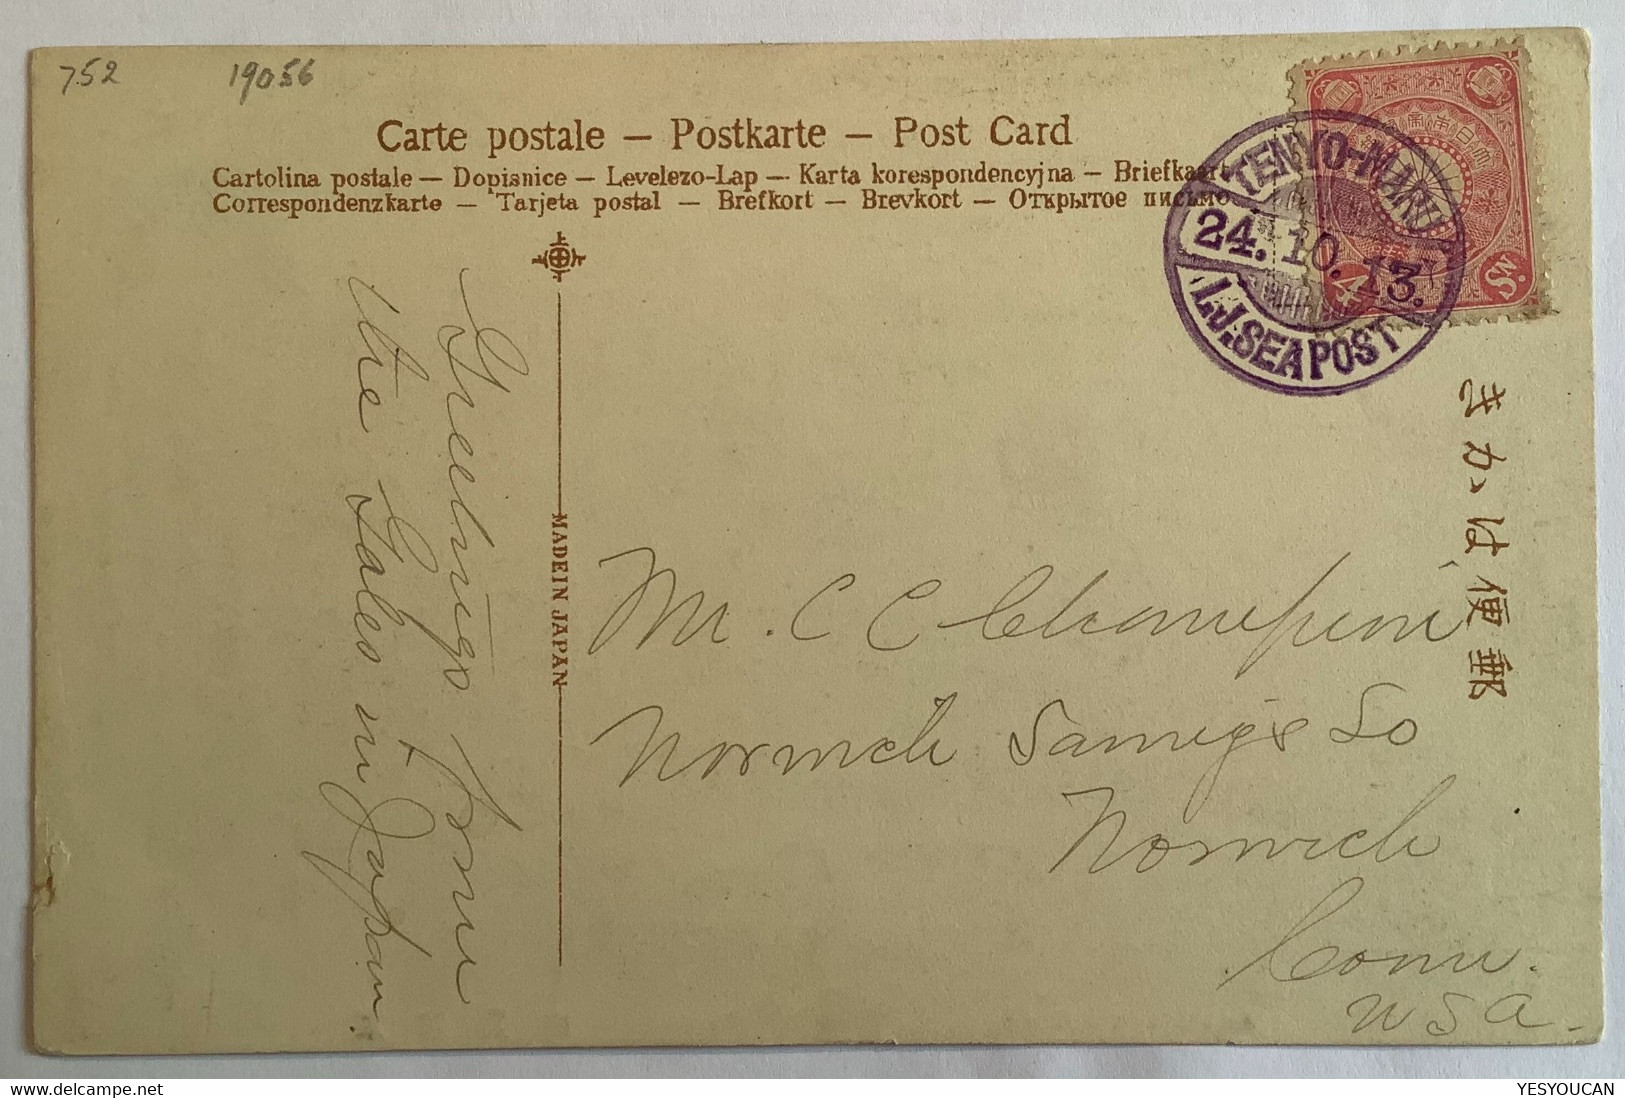 752
19056
Carte postale — Postkarte — Post Card
Cartolina postale — Dopisnice — Levelezo-Lap — Karta korespondencyjna — Briefkaart
Correspondenzkarte — Tarjeta postal — Brefkort — Brevkort — Открытое письмо
TENYO-MARU
24.10.13.
I.J.SEA POST
4
Sn.
きかは便郵
MADE IN JAPAN
Greetings from
the Gales in Japan.
Mr. C C
Norwich Savings So
Norwich
Conn.
USA.
delcampe.net
YESYOUCAN